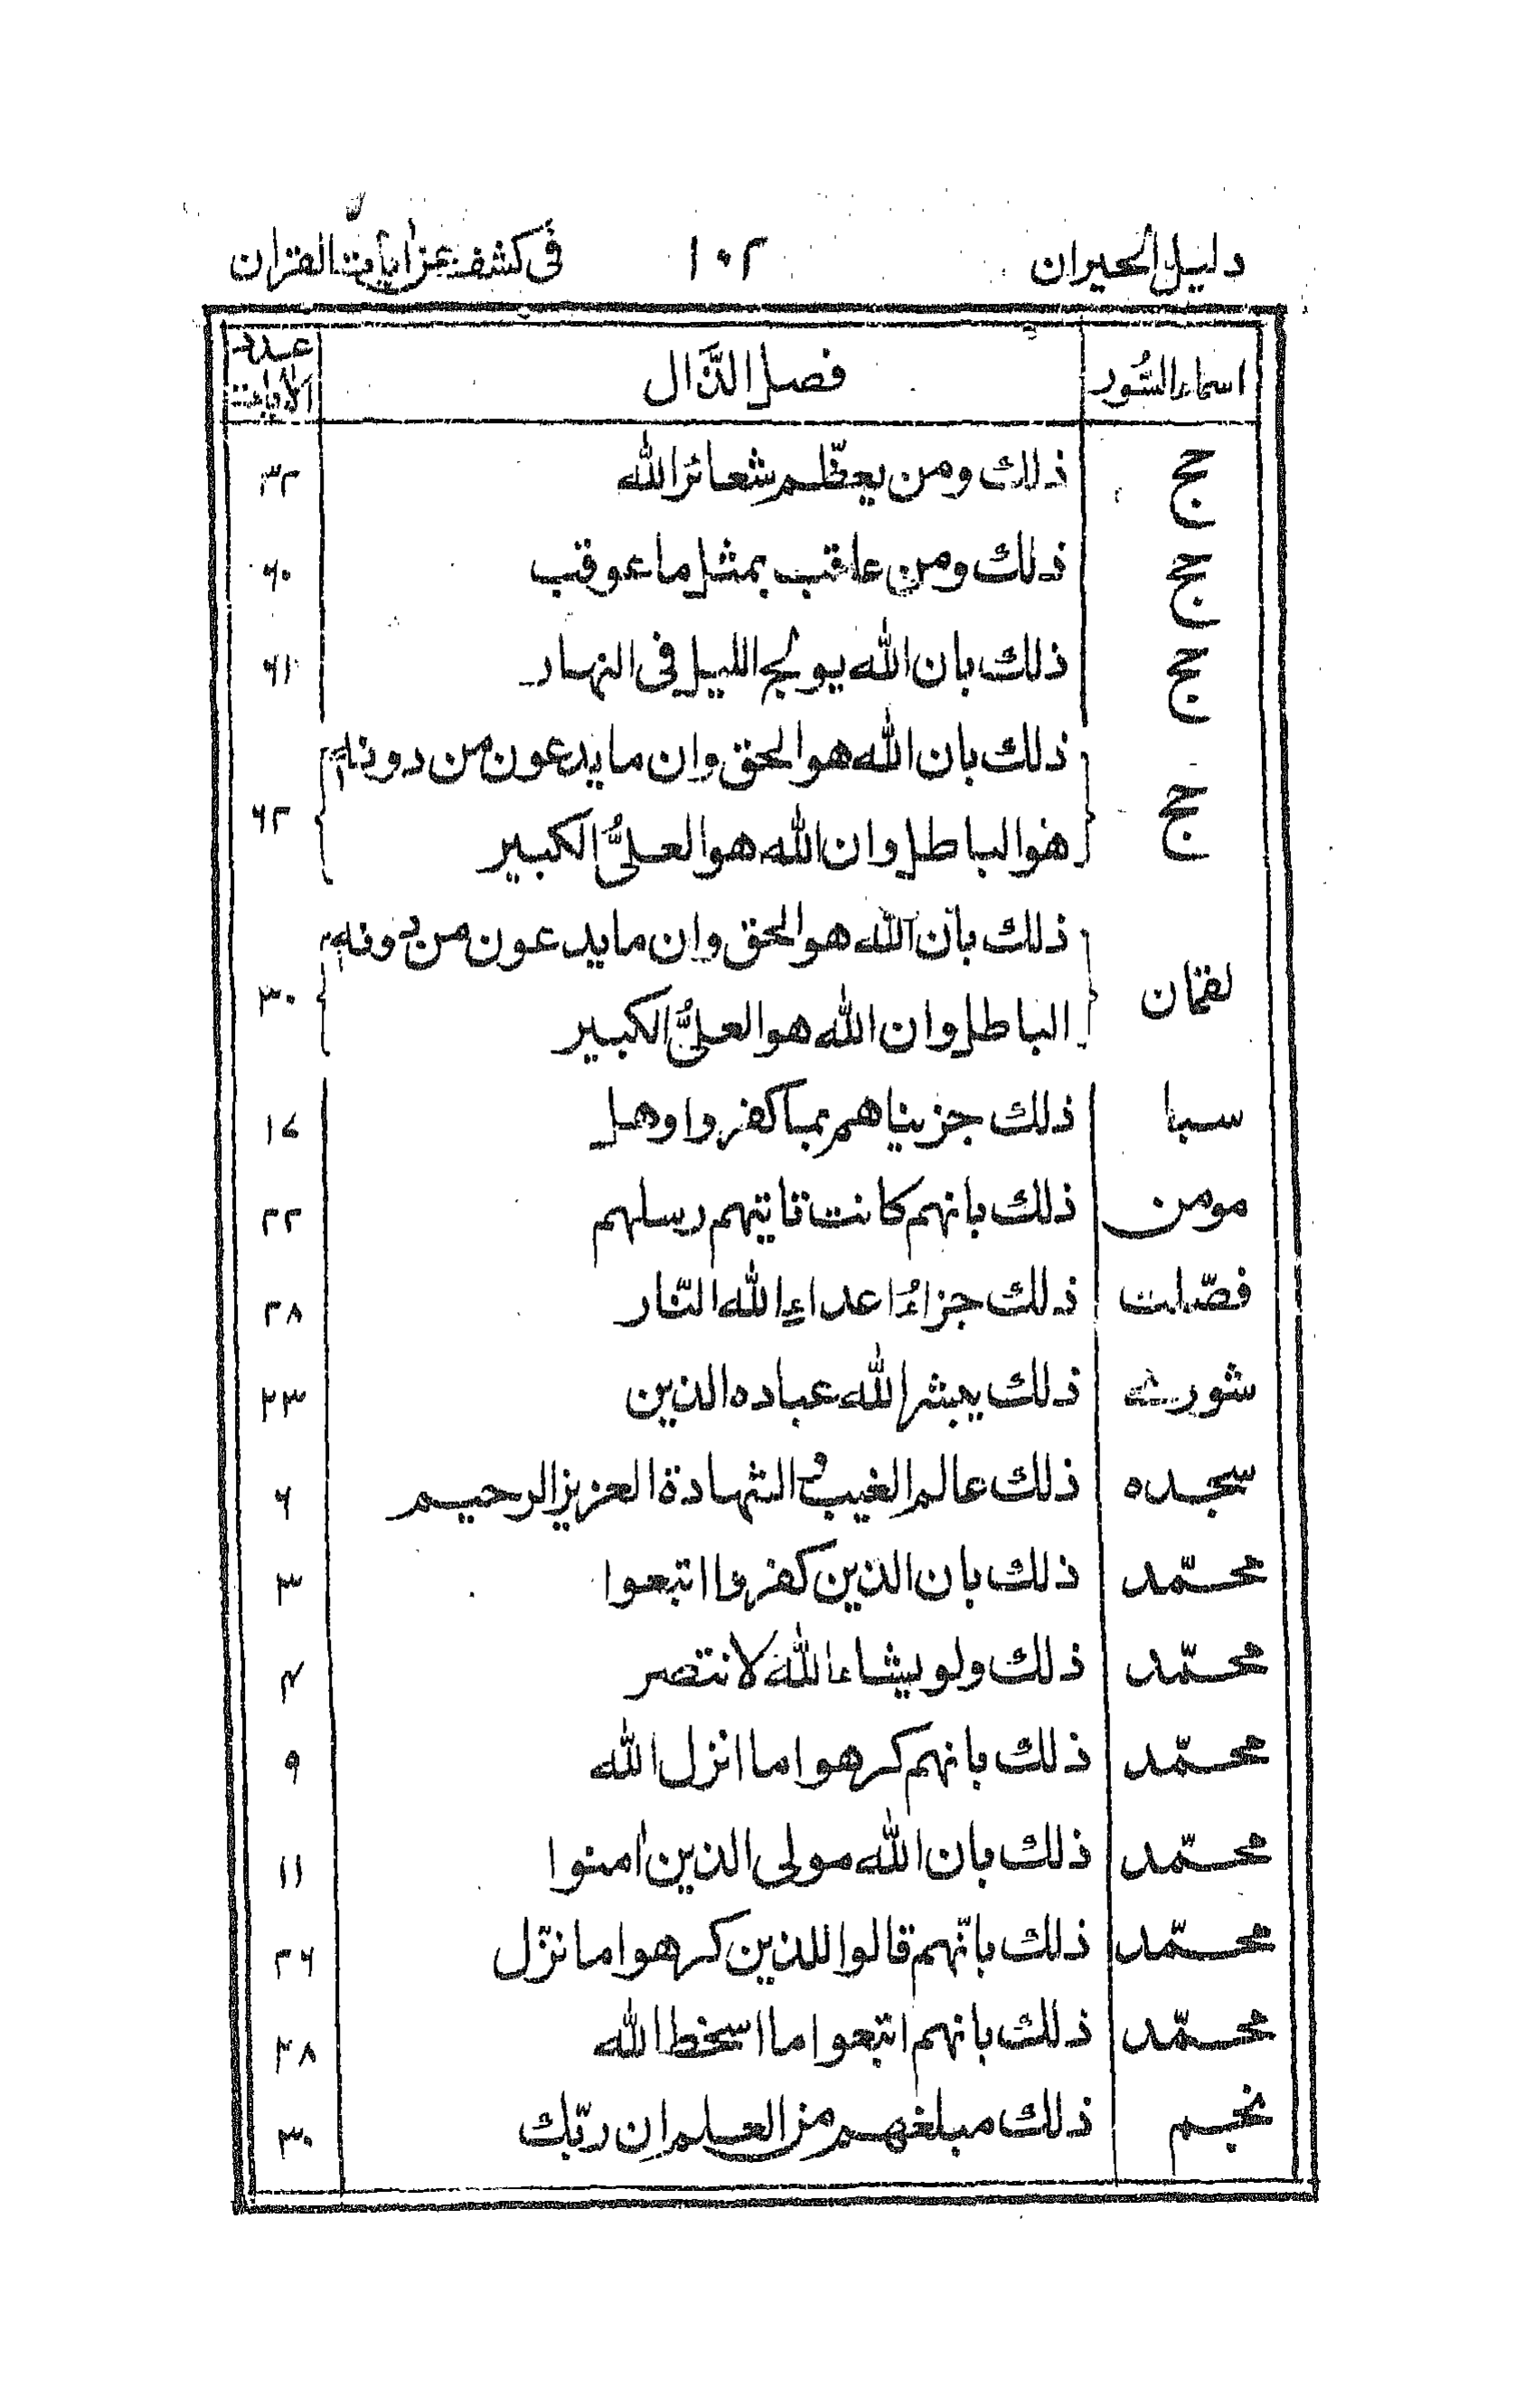 دليل الحيران ١٠٢ فى كشف عن ايات القران
اسماء السُّور فصل الذَّال عدد الايات
حج ذلك ومن يعظّم شعائر الله ٣٢
حج ذلك ومن عاقب بمثل ما عوقب ٦٠
حج ذلك بان الله يولج الليل فى النهار ٦١
حج ذلك بان الله هو الحق وان ما يدعون من دونه
هو الباطل وان الله هو العلىُّ الكبير ٦٢
لقمان ذلك بان الله هو الحق وان ما يدعون من دونه
الباطل وان الله هو العلىُّ الكبير ٣٠
سبا ذلك جزيناهم بما كفروا وهل ١٧
مومن ذلك بانهم كانت تاتيهم رسلهم ٢٢
فصّلت ذلك جزاءُ اعداءِ الله النّار ٢٨
شورے ذلك يبشر الله عباده الذين ٢٣
سجده ذلك عالم الغيب والشهادة العزيز الرحيم ٦
محمّد ذلك بان الذين كفروا اتبعوا ٣
محمّد ذلك ولو يشاء الله لانتصر ٤
محمّد ذلك بانهم كرهوا ما انزل الله ٩
محمّد ذلك بان الله مولى الذين امنوا ١١
محمّد ذلك بانّهم قالوا للذين كرهوا ما نزّل ٢٦
محمّد ذلك بانهم اتبعوا ما اسخط الله ٢٨
نجم ذلك مبلغهم من العلم ان ربّك ٣٠